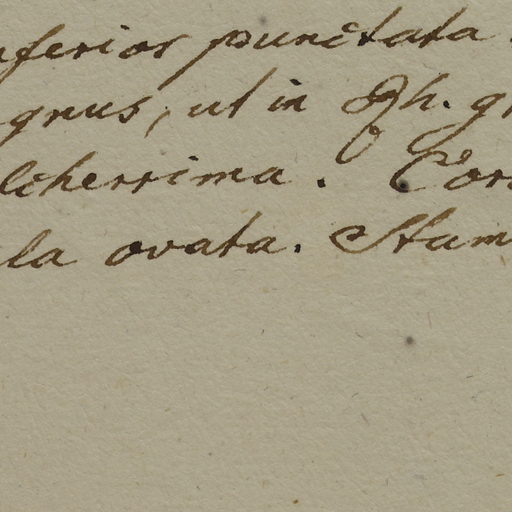 nferior punctata.
gnus, ut in Gh. gr
lcherrima. Cor
la ovata. Stam